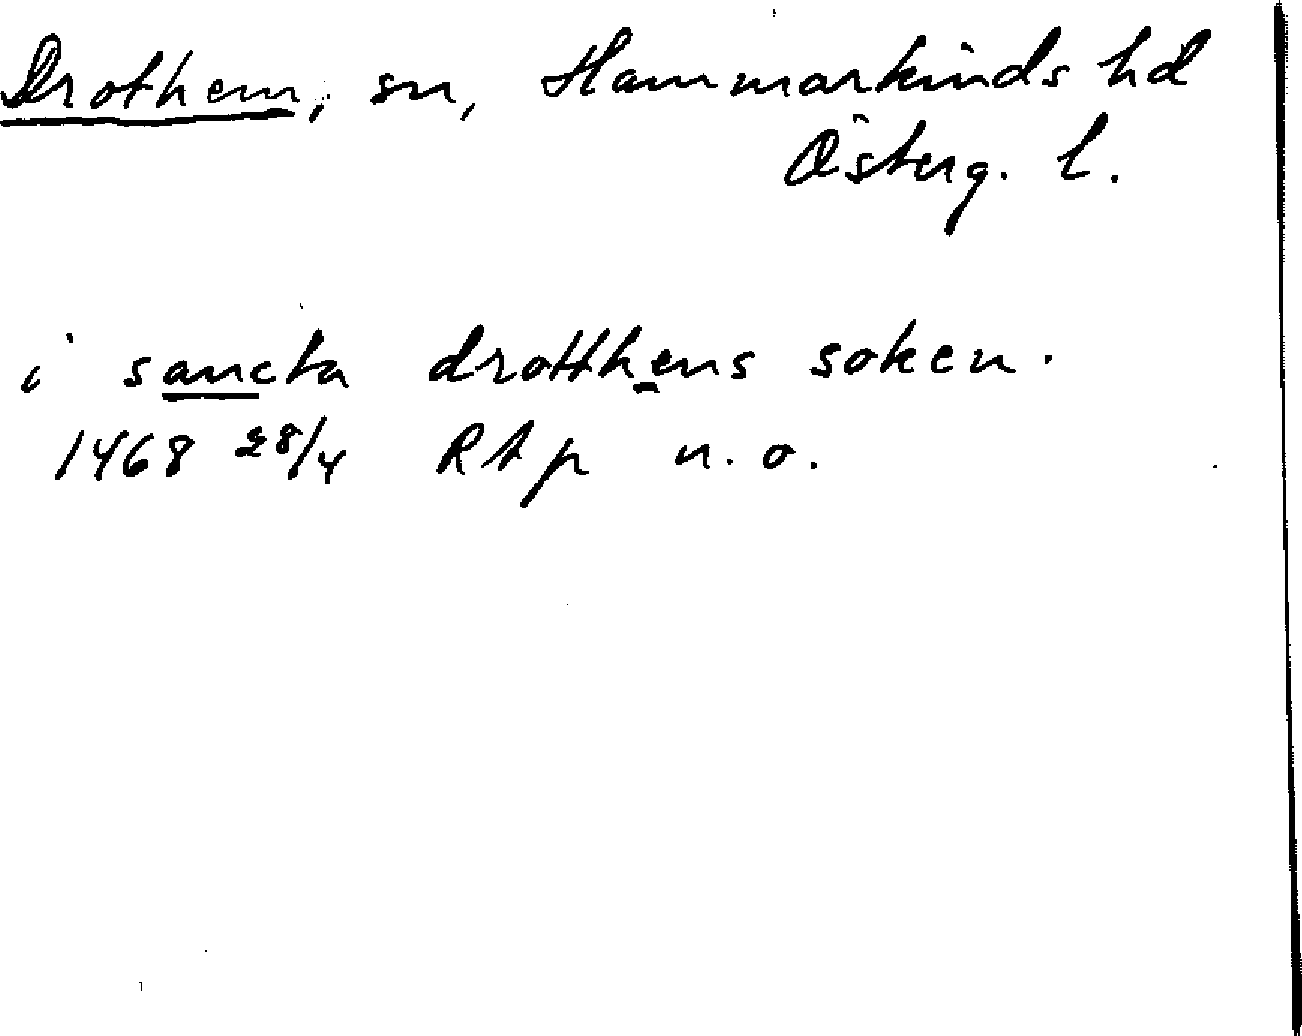 Drothem, sn, Hammarkinds hd
Österg. l.
i sancta drotthens soken.
1468 28/4 RAp n. o.